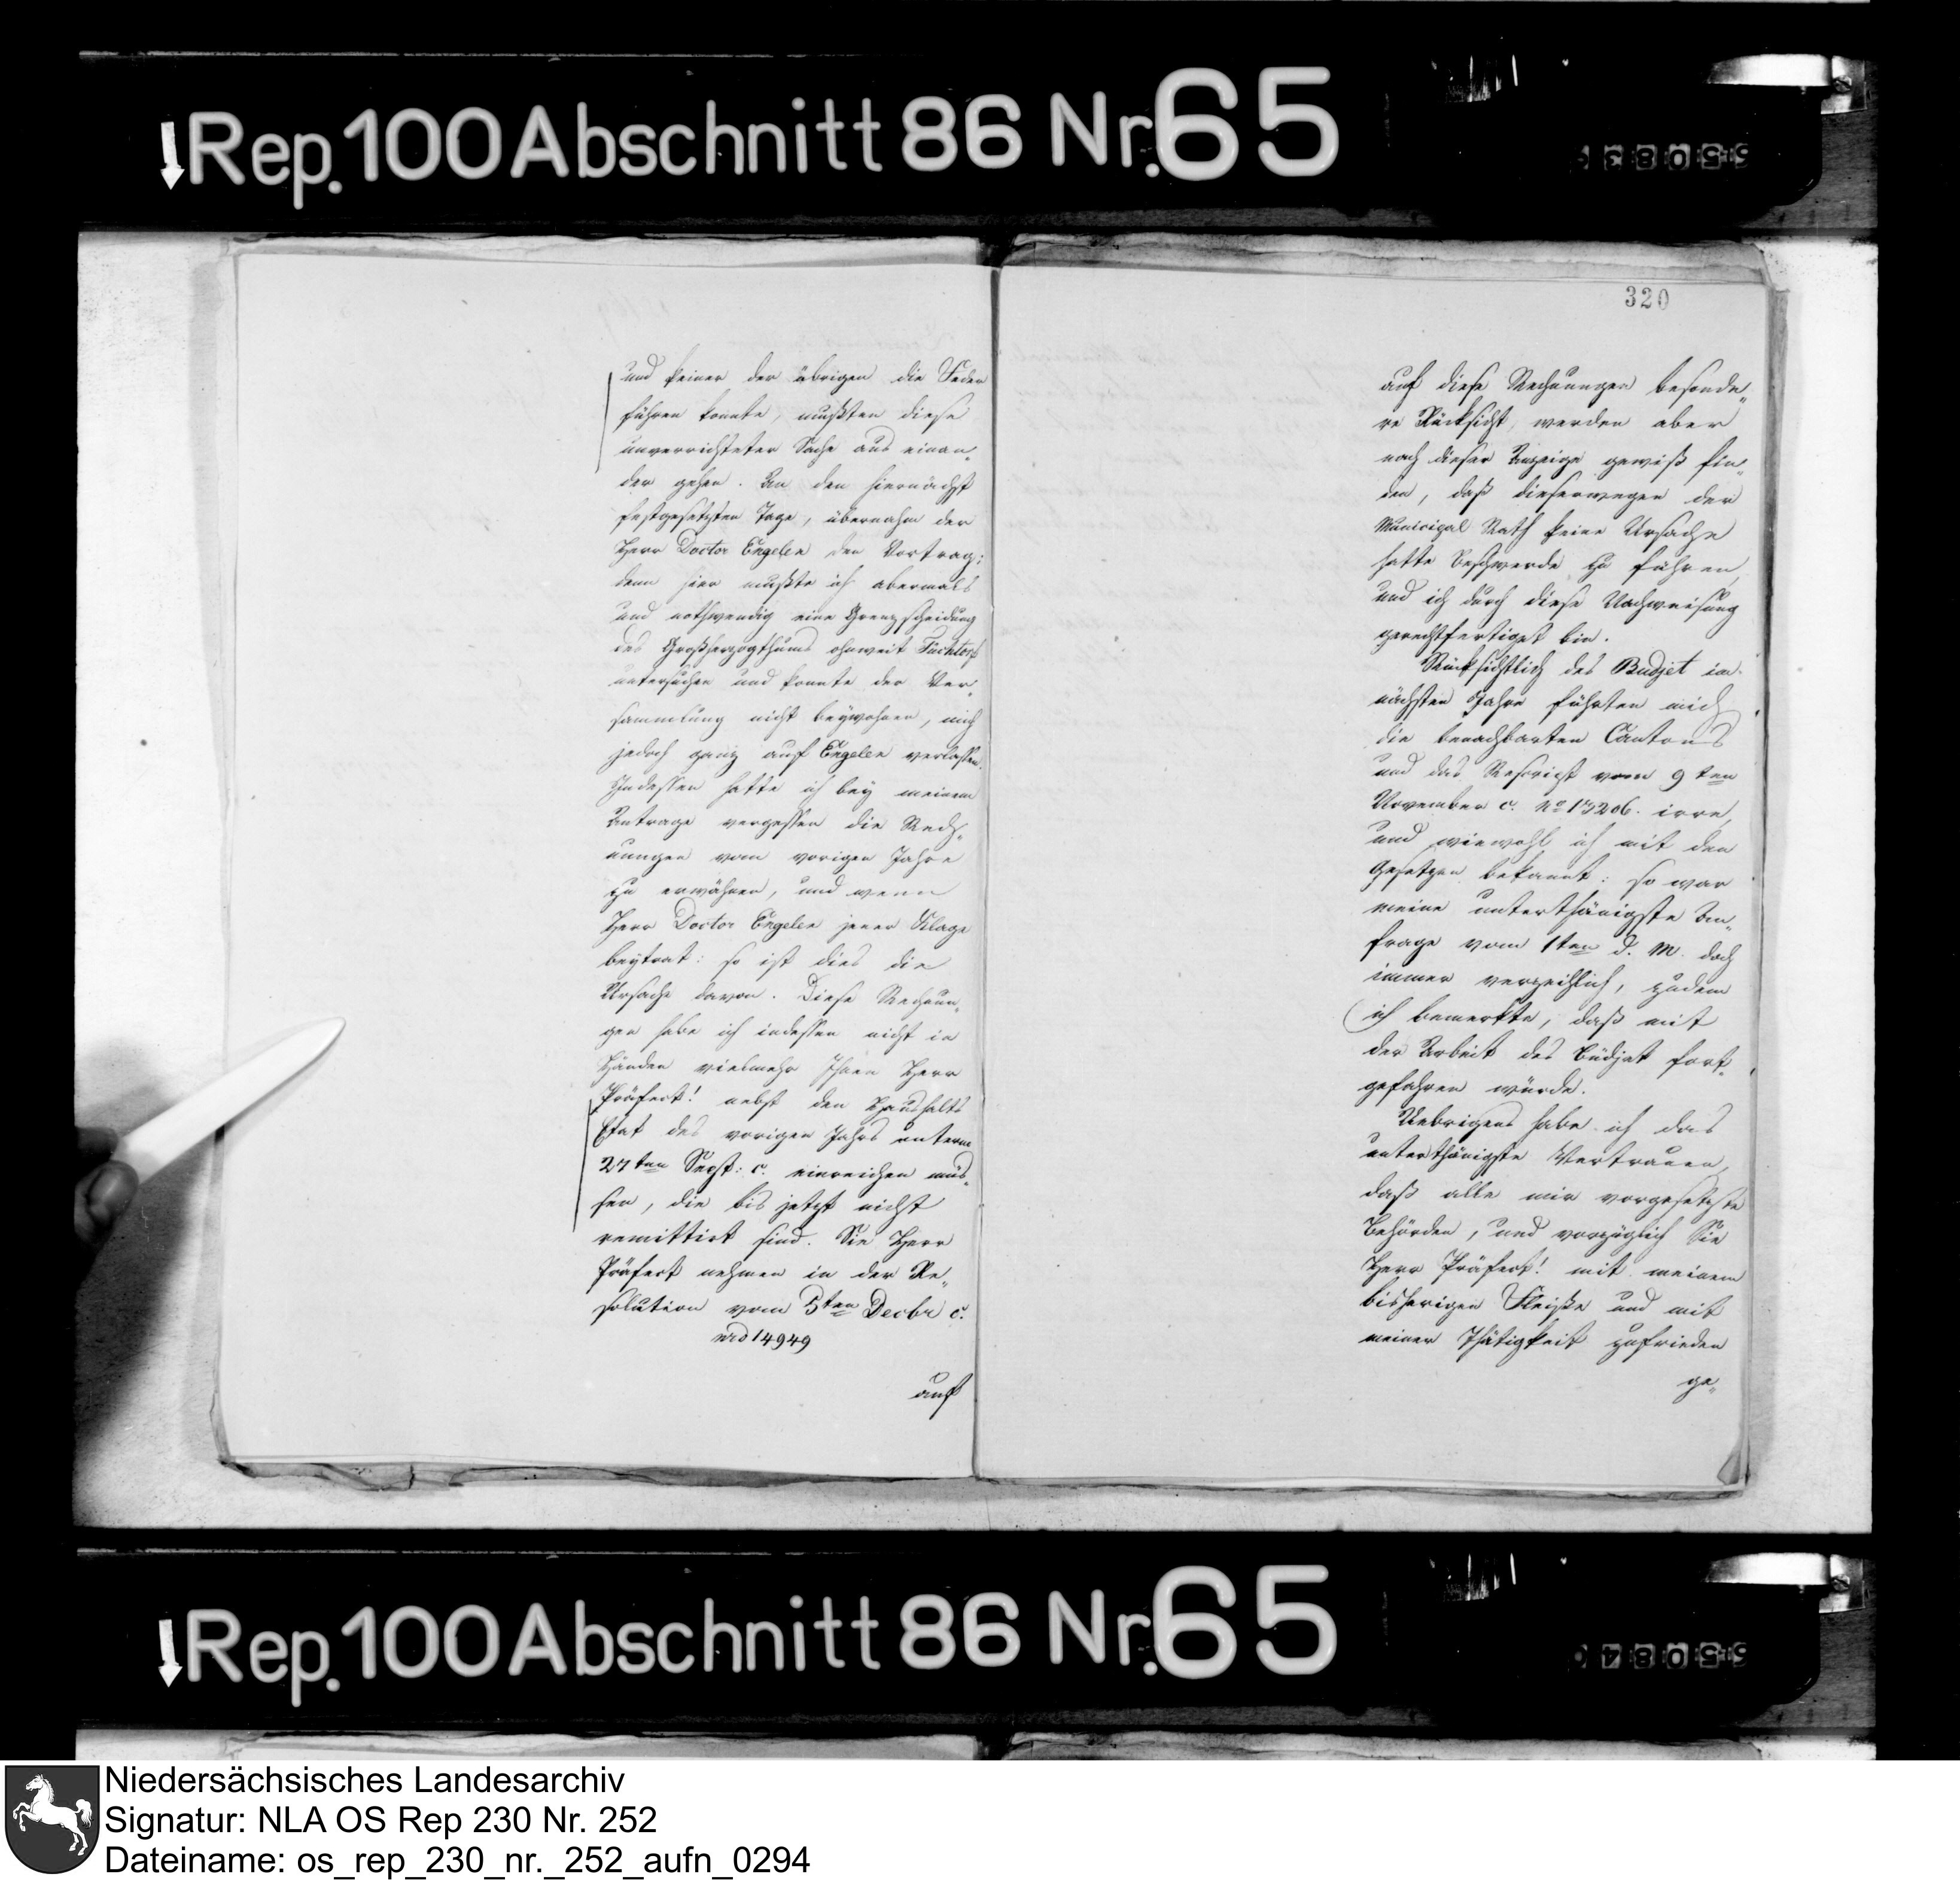 Rep. 100 Abschnitt 86 Nr. 65
und keiner der übrigen die Feder
führen konnte, mußten diese
unverrichteter Sache aus einan„
der gehen. An den hiernächst
festgesetzten Tage, übernahm der
Herr Doctor Engelen den Vortrag;
denn hier mußte ich abermals
und nothwendig eine Grenzscheidung
des Großherzogthums ohnweit Füchtorf
untersuchen und konnte der Ver„
sammlung nicht beywohnen, mich
jedoch ganz auf Engelen verlassen.
Indessen hatte ich bey meinem
Antrage vergessen die Rech„
nungen vom vorigen Jahre
zu erwähnen, und wenn
Herr Doctor Engelen jener Klage
beytrat: so ist dies die
Ursache davon. Diese Rechnun„
gen habe ich indessen nicht in
Händen vielmehr Ihnen Herr
Präfect! nebst den Haushalts
Etat des vorigen Jahrs unterm
27ten Sept: c. einreichen müs„
sen, die bis jetzt nicht
remittirt sind. Sie Herr
Präfect nehmen in der Re„
solution vom 5ten Decbr c.
nro 14949
auf
320
auf diese Rechnungen besonde„
re Rücksicht, werden aber
nach dieser Anzeige gewiß fin„
den, daß dieserwegen der
Municipal Rath keine Ursache
hatte Beschwerde zu führen,
und ich durch diese Nachweisung
gerechtfertiget bin.
Rücksichtlich des Budjet im
nächsten Jahre führten mich
die benachbarten Cantons
und das Rescript vom 9ten
November c. No 13206. irre,
und wiewohl ich mit den
Gesetzen bekannt: so war
meine unterthänigste An„
frage vom 1ten d. M. doch
immer verzeihlich, zudem
ich bemerkte, daß mit
der Arbeit des Büdjet fort„
gefahren würde.
Uebrigens habe ich das
unterthänigste Vertrauen,
daß alle mir vorgesetzte
Behörden, und vorzüglich Sie
Herr Präfect! mit meinem
bisherigen Fleiße und mit
meiner Thätigkeit zufrieden
ge„
Rep. 100 Abschnitt 86 Nr. 65
Niedersächsisches Landesarchiv
Signatur: NLA OS Rep 230 Nr. 252
Dateiname: os_rep_230_nr._252_aufn_0294